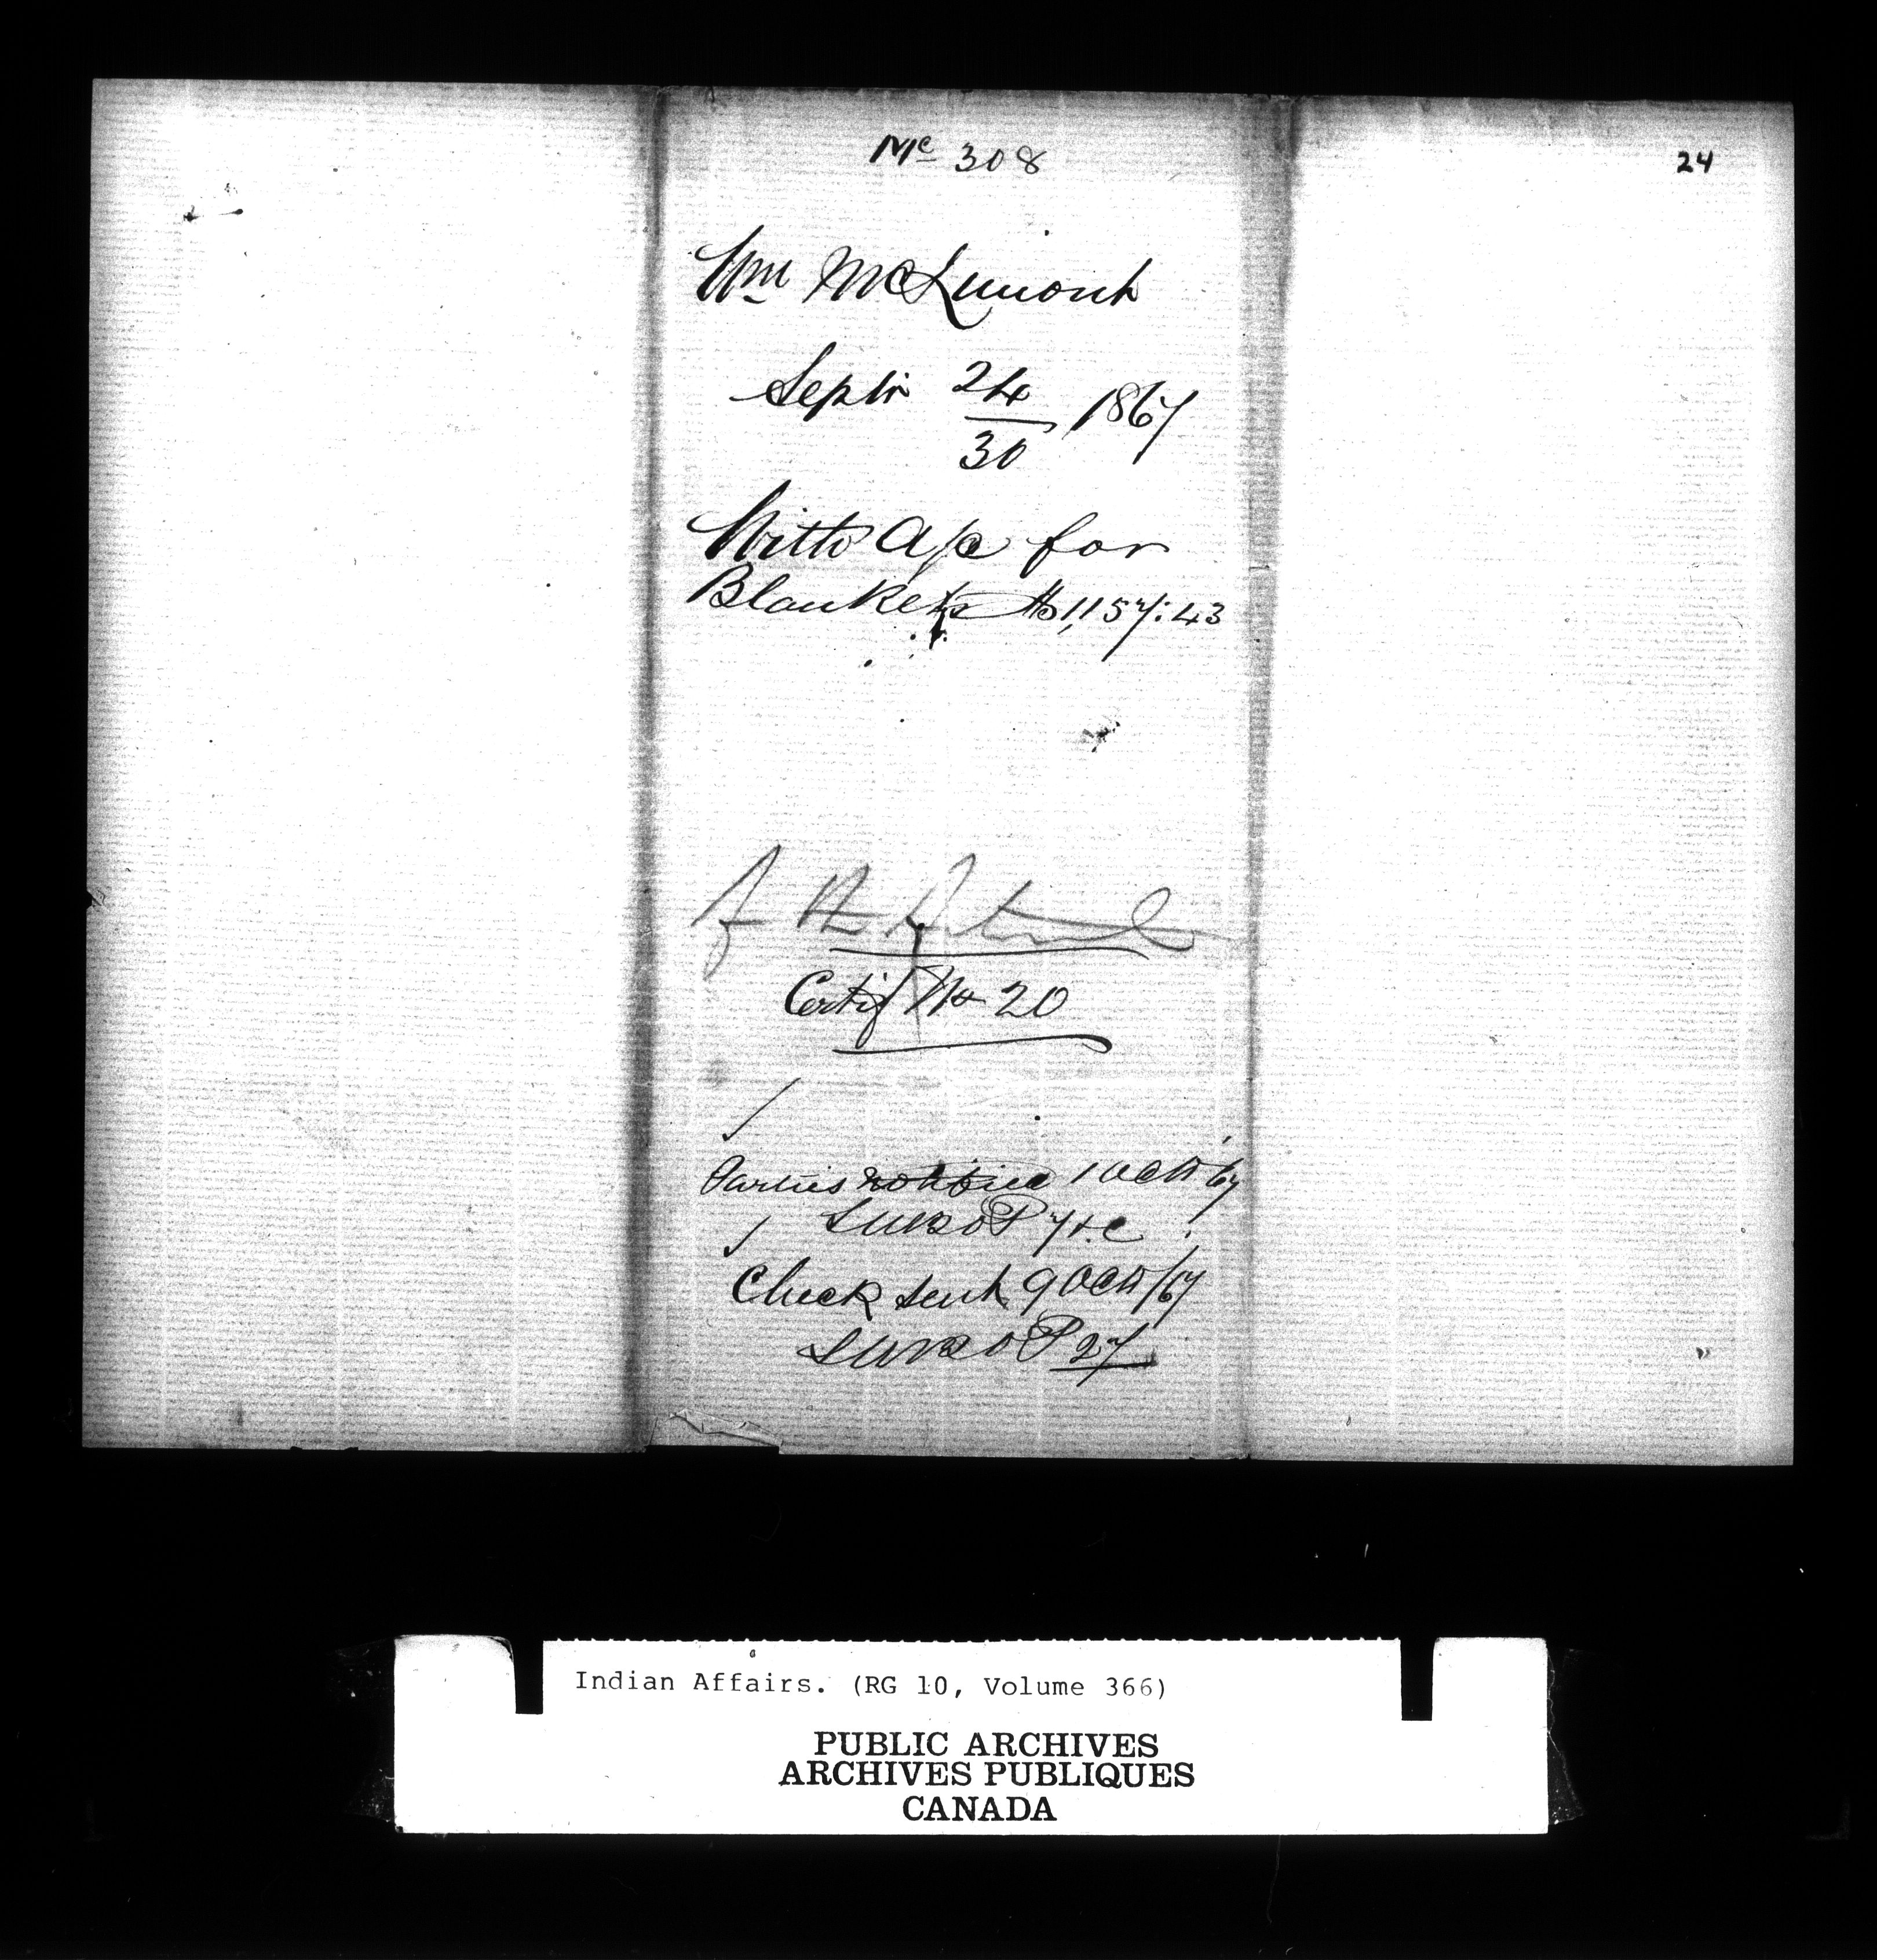 Mc 308
24
Wm McLimont
Septr 24/30 1867
With a/c for
Blankets $1,157:43
Certif No 20
Parties notified 1 Octr 67
LWBO P 7
Check sent 9 Octr/67
LWBO P 27
Indian Affairs. (RG 10, Volume 366)
PUBLIC ARCHIVES
ARCHIVES PUBLIQUES
CANADA